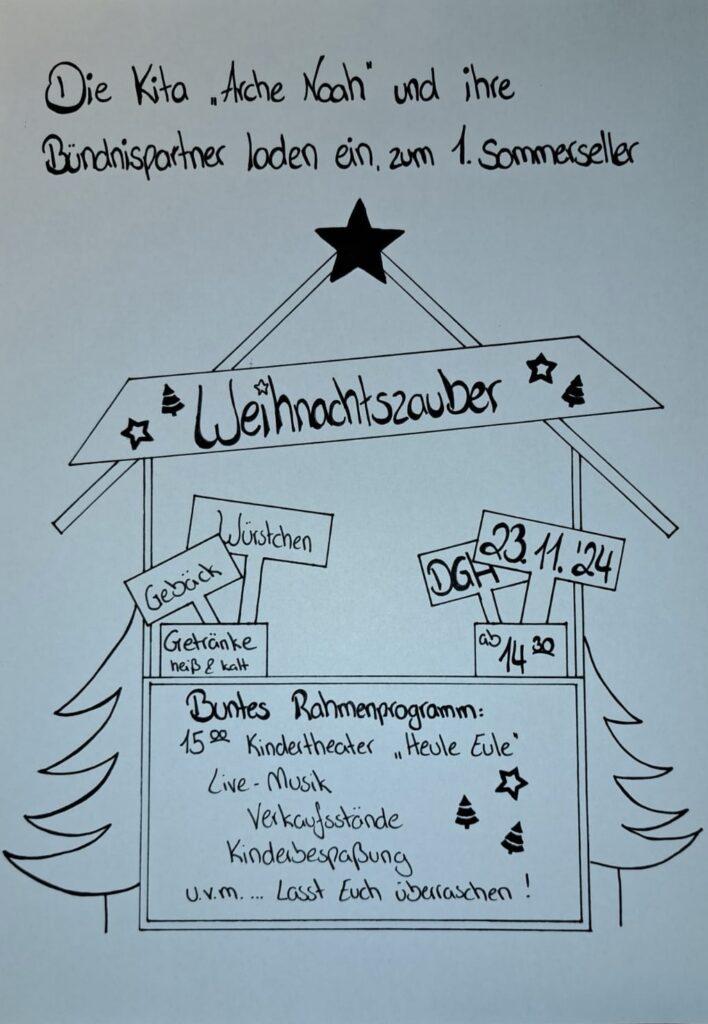 Die Kita „Arche Noah" und ihre
Bündnispartner laden ein, zum 1. Sommerseller
Weihnachtszauber
Würstchen
Gebäck
Getränke
heiß & kalt
DGH
23.11.'24
ab 14 30
Buntes Rahmenprogramm:
15 00 Kindertheater „Heule Eule"
Live-Musik
Verkaufsstände
Kinderbespaßung
u.v.m. ... Lasst Euch überraschen!